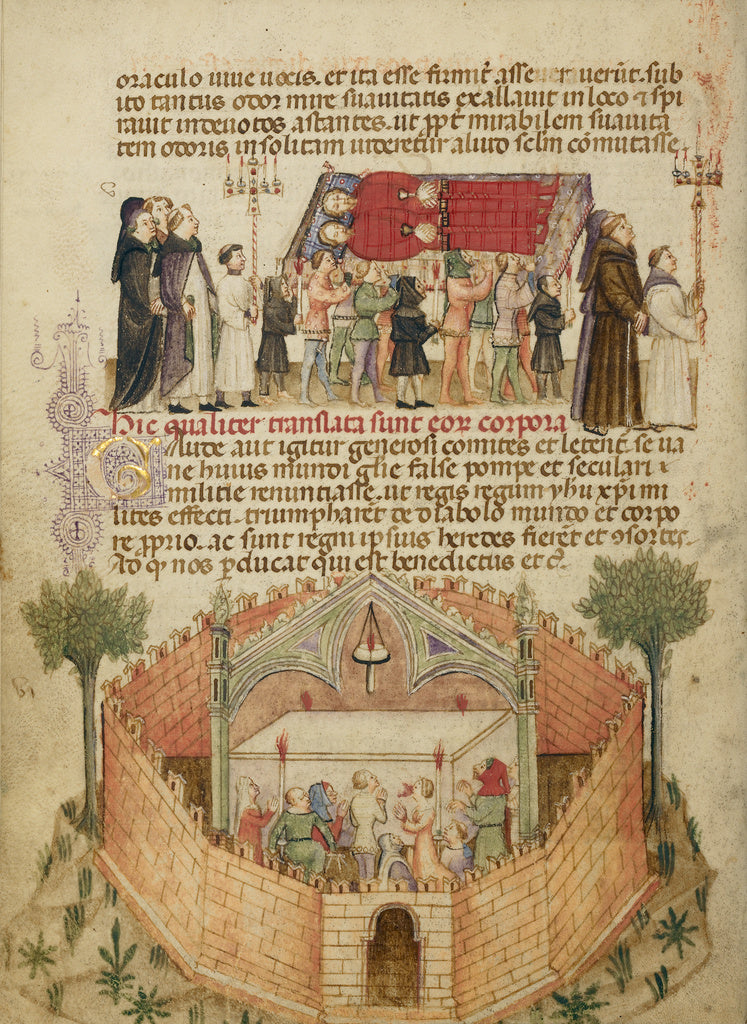 oraculo uiue uocis. et ita esse firmit̄ asseruerūt. sub
ito tantus odor mire suauitatis exallauit in loco ⁊ spi
rauit in deuotos astantes. ut ꝓpt̄ mirabilem suauita
tem odoris insolitam uideretur aliud sclm̄ cōmutasse.
Hic qualiter translata sunt eoꝝ corpora
Gaude aut igitur generosi comites et letent̄. se ua
ne huius mundi gl̄ie false pompe et seculari
militie renuntiasse. ut regis regum yhu xp̄i mi
lites effecti. triumpharēt de diabolo mundo et corpo
re ꝓprio. ac sunt regni ipsius heredes fierēt et ꝯsortes.
Ad qͥ nos ꝑducat qui est benedictus et c̄.